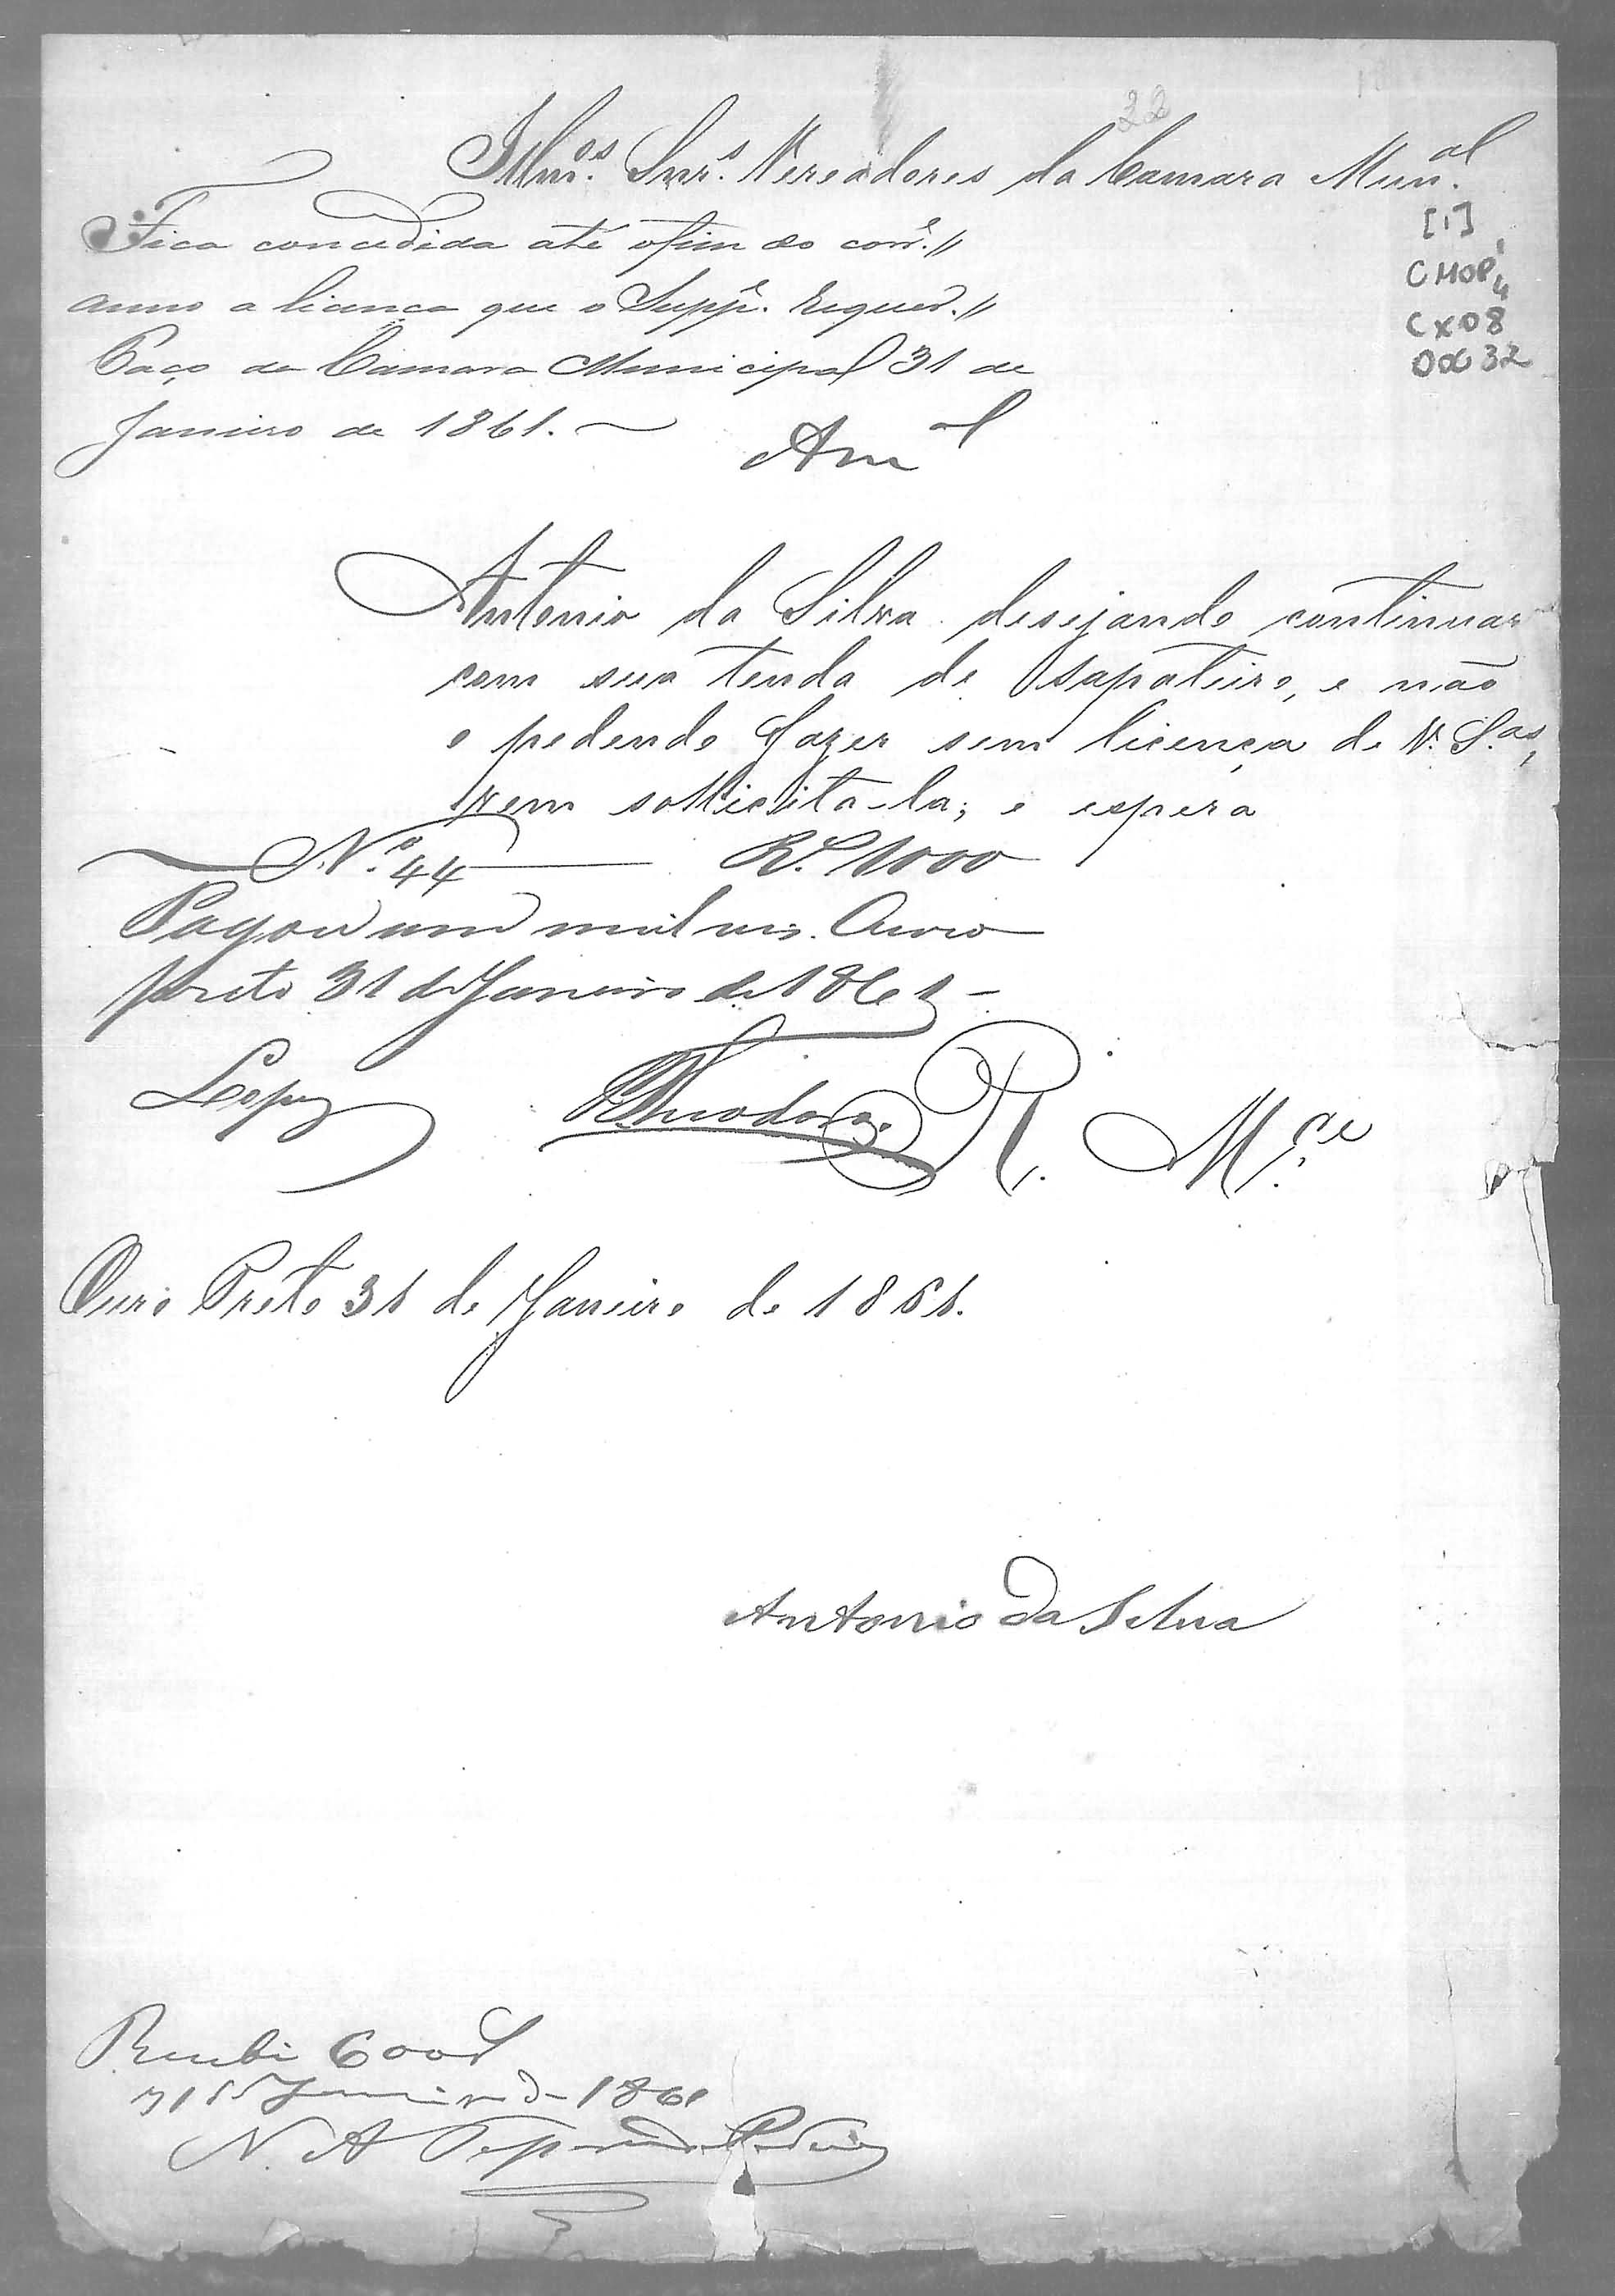 22
Illm.os Snr.s Vereadores da Camara Mun.al
[1]
CMOP
Cx08
DOC 32
Fica concedida até o fim do corr.e //
anno a licença que o Supp.e requer. //
Paço da Camara Municipal 31 de
Janeiro de 1861.
Am.al
Antonio da Silva desejando continuar
com sua tenda de sapateiro, e não
o podendo fazer sem licença de V. S.as,
vem sollicita-la; e espera
N.o 44 R.s 1000
Pagou um mil reis. Ouro
preto 31 de Janeiro de 1861
Lopes Theodoro R. M.ce
Ouro Preto 31 de Janeiro de 1861.
Antonio da Silva
Recebi 600
31 de Janeiro de 1861
N. A.